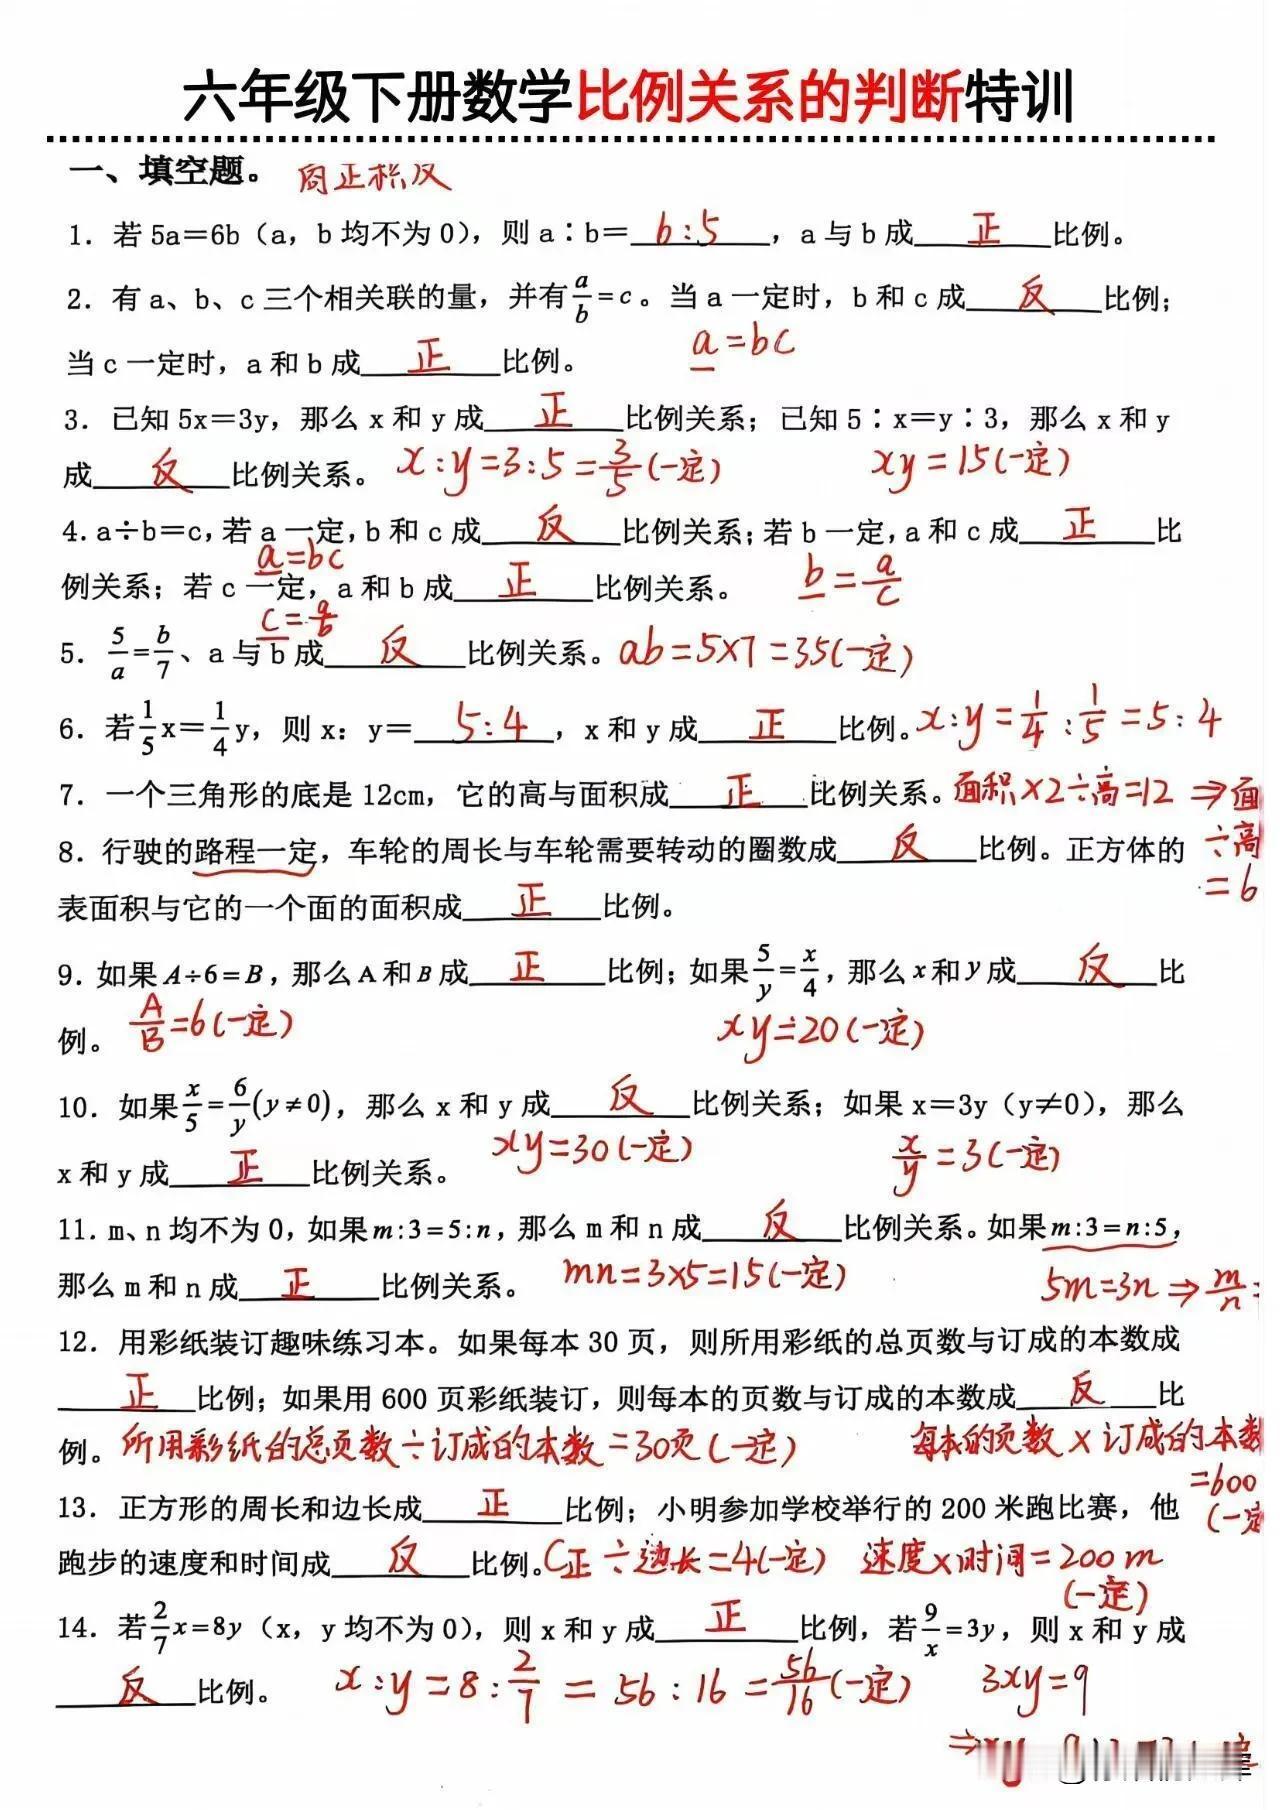 六年级下册数学比例关系的判断特训
一、填空题。 商正积反
1. 若 5a=6b（a，b 均不为 0），则 a∶b= 6:5 ，a 与 b 成 正 比例。
2. 有 a、b、c 三个相关联的量，并有 a/b = c。当 a 一定时，b 和 c 成 反 比例；
当 c 一定时，a 和 b 成 正 比例。 a=bc
3. 已知 5x=3y，那么 x 和 y 成 正 比例关系；已知 5∶x=y∶3，那么 x 和 y
成 反 比例关系。 x:y=3:5=3/5(一定) xy=15(一定)
4. a÷b=c，若 a 一定，b 和 c 成 反 比例关系；若 b 一定，a 和 c 成 正 比
a=bc
例关系；若 c 一定，a 和 b 成 正 比例关系。 b=a/c
c=a/b
5. 5/a=b/7、a 与 b 成 反 比例关系。ab=5×7=35(一定)
6. 若 1/5 x=1/4 y，则 x：y= 5:4 ，x 和 y 成 正 比例。x:y=1/4:1/5=5:4
7. 一个三角形的底是 12cm，它的高与面积成 正 比例关系。面积×2÷高=12 ⇒面
8. 行驶的路程一定，车轮的周长与车轮需要转动的圈数成 反 比例。正方体的 ÷高
表面积与它的一个面的面积成 正 比例。 =6
9. 如果 A÷6=B，那么 A 和 B 成 正 比例；如果 5/y=x/4，那么 x 和 y 成 反 比
例。 A/B=6(一定) xy=20(一定)
10. 如果 x/5=6/y(y≠0)，那么 x 和 y 成 反 比例关系；如果 x=3y（y≠0），那么
xy=30(一定) x/y=3(一定)
x 和 y 成 正 比例关系。
11. m、n 均不为 0，如果 m:3=5:n，那么 m 和 n 成 反 比例关系。如果 m:3=n:5，
那么 m 和 n 成 正 比例关系。 mn=3×5=15(一定) 5m=3n⇒m/n=
12. 用彩纸装订趣味练习本。如果每本 30 页，则所用彩纸的总页数与订成的本数成
正 比例；如果用 600 页彩纸装订，则每本的页数与订成的本数成 反 比
例。所用彩纸的总页数÷订成的本数=30页(一定) 每本的页数×订成的本数
=600
13. 正方形的周长和边长成 正 比例；小明参加学校举行的 200 米跑比赛，他 (一定
跑步的速度和时间成 反 比例。C正÷边长=4(一定) 速度×时间=200m
(一定)
14. 若 2/7 x=8y（x，y 均不为 0），则 x 和 y 成 正 比例，若 9/x=3y，则 x 和 y 成
反 比例。 x:y=8:2/7=56:16=56/16(一定) 3xy=9
⇒xy